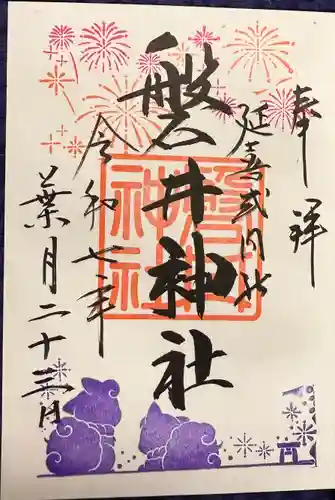 奉拝
延喜式内社
磐井神社
令和七年
葉月二十三日
磐井神社